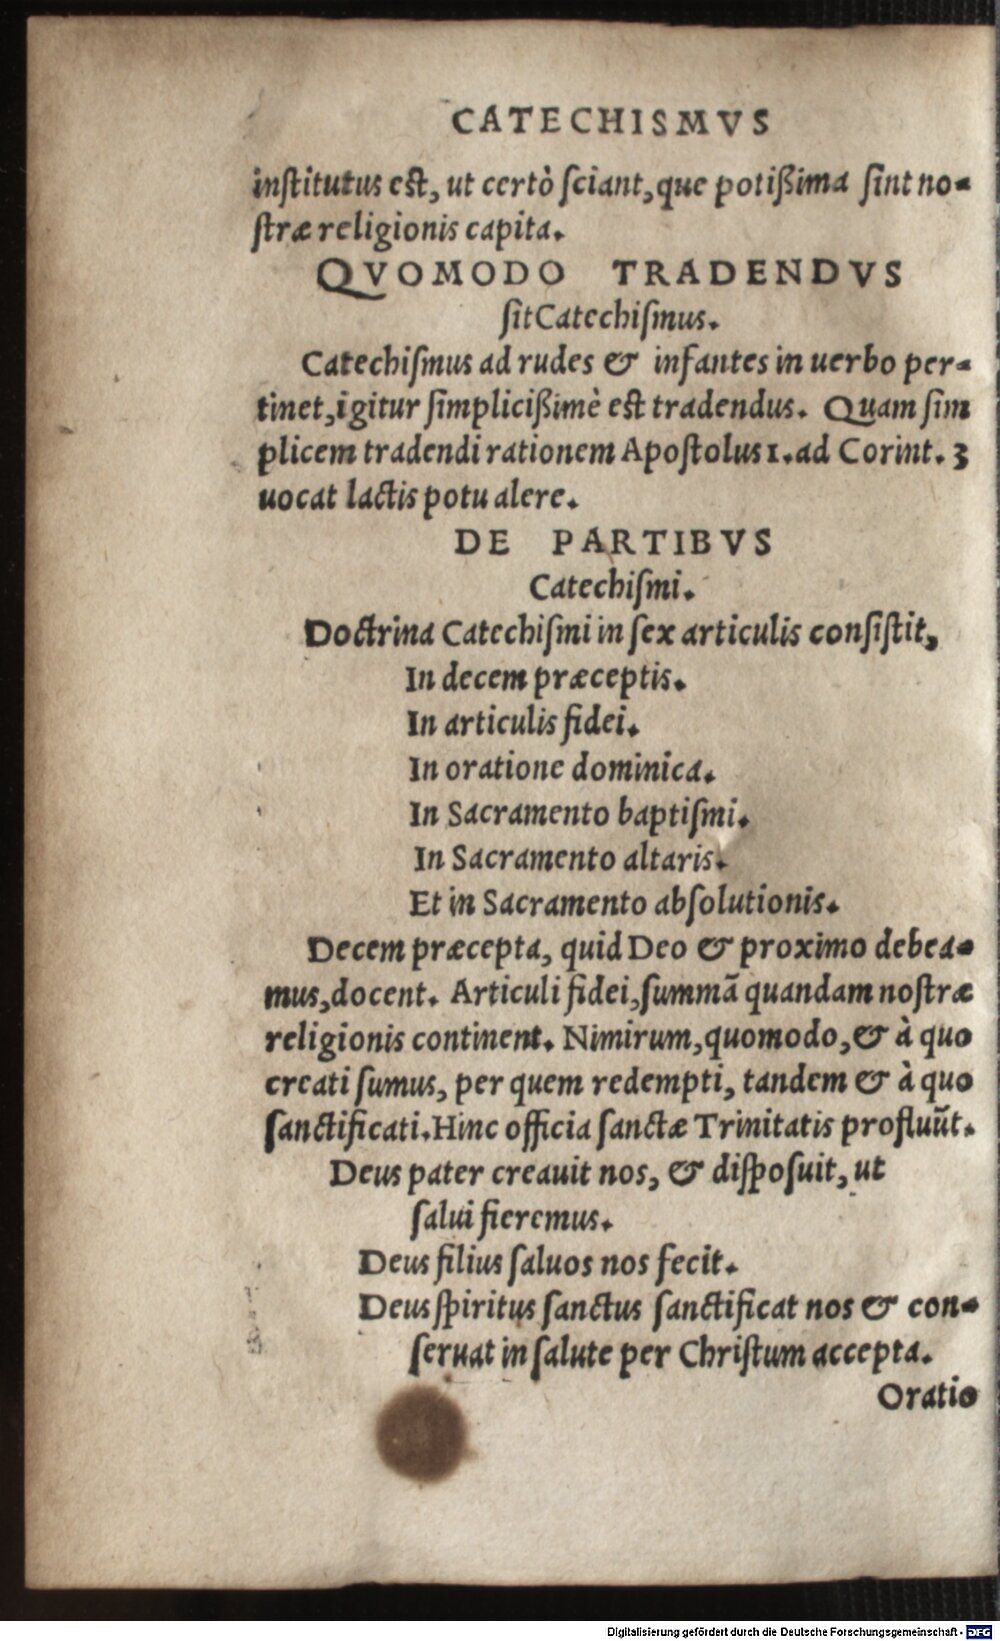 CATECHISMVS
inſtitutus eſt, ut certò ſciant, que potißima ſint no-
ſtræ religionis capita.
QVOMODO TRADENDVS
ſit Catechiſmus.
Catechiſmus ad rudes & infantes in uerbo per-
tinet, igitur ſimplicißimè eſt tradendus. Quam ſim
plicem tradendi rationem Apoſtolus 1. ad Corint. 3
uocat lactis potu alere.
DE PARTIBVS
Catechiſmi.
Doctrina Catechiſmi in ſex articulis conſiſtit,
In decem præceptis.
In articulis fidei.
In oratione dominica.
In Sacramento baptiſmi.
In Sacramento altaris.
Et in Sacramento abſolutionis.
Decem præcepta, quid Deo & proximo debea-
mus, docent. Articuli fidei, ſummã quandam noſtræ
religionis continent. Nimirum, quomodo, & à quo
creati ſumus, per quem redempti, tandem & à quo
ſanctificati. Hinc officia ſanctæ Trinitatis profluũt.
Deus pater creauit nos, & diſpoſuit, ut
ſalui fieremus.
Deus filius ſaluos nos fecit.
Deus ſpiritus ſanctus ſanctificat nos & con-
ſeruat in ſalute per Chriſtum accepta.
Oratio
Digitalisierung gefördert durch die Deutsche Forschungsgemeinschaft - DFG